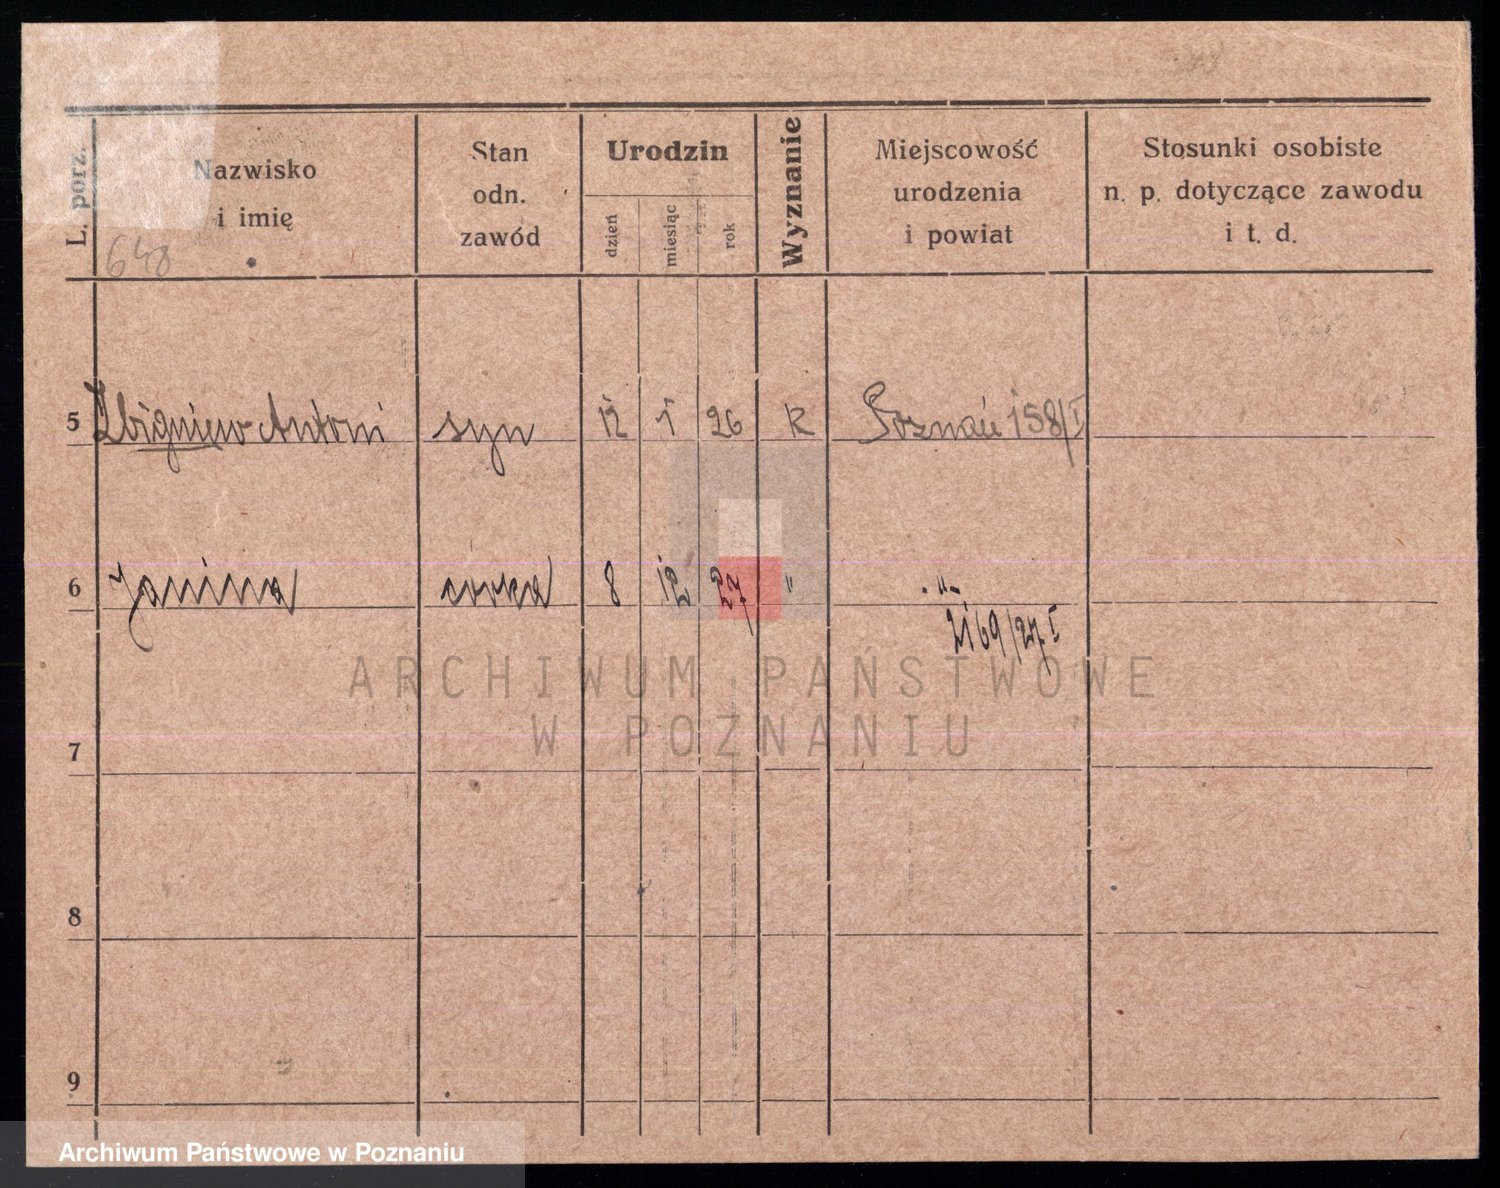 L. porz.
Nazwisko
i imię
Stan
odn.
zawód
Urodzin
dzień
miesiąc
rok
Wyznanie
Miejscowość
urodzenia
i powiat
Stosunki osobiste
n. p. dotyczące zawodu
i t. d.
648
5 Zbigniew Antoni syn 12 1 26 k Poznań 158/I
6 Janina córka 8 12 27 " . " -
2169/27 I
7
8
9
ARCHIWUM PAŃSTWOWE
W POZNANIU
Archiwum Państwowe w Poznaniu